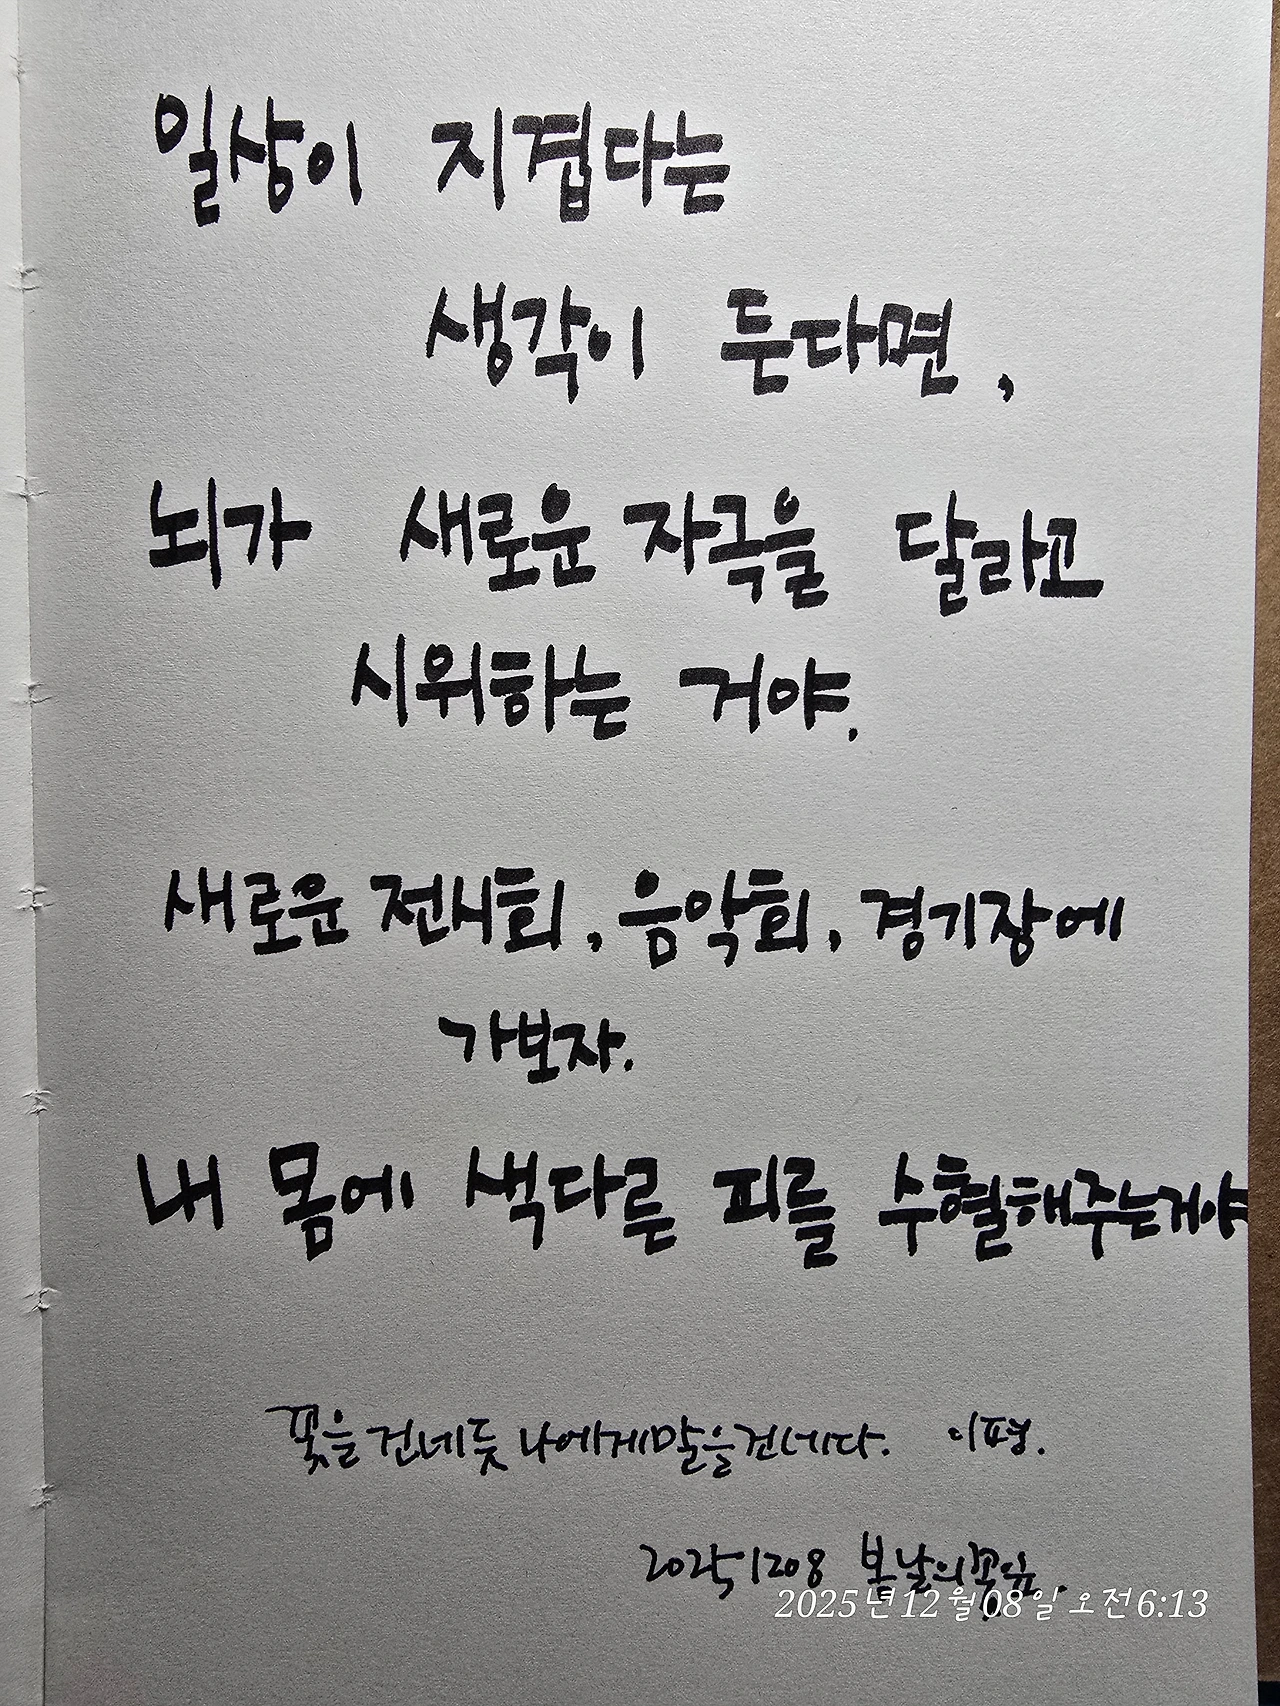 일상이 지겹다는
생각이 든다면,
뇌가 새로운 자극을 달라고
시위하는 거야.
새로운 전시회, 음악회, 경기장에
가보자.
내 몸에 색다른 피를 수혈해주는거야
꽃을 건네듯 나에게 말을 건네다. 이평.
20251208 봄날의
2025년 12월 08일 오전 6:13